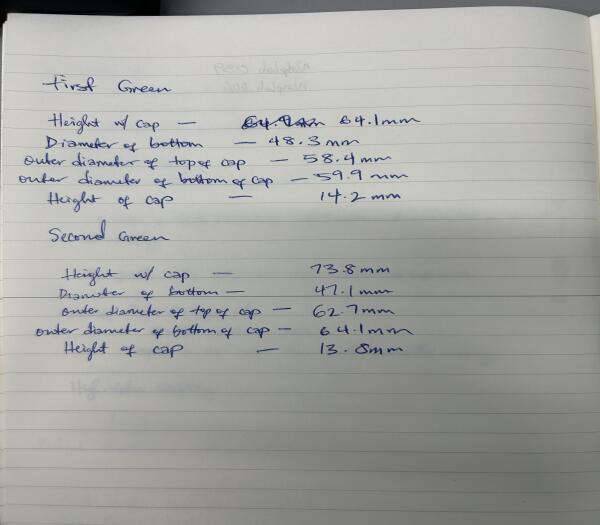 First Green
Height w/ cap — 64.1mm
Diameter of bottom — 48.3mm
outer diameter of top of cap — 58.4mm
outer diameter of bottom of cap — 59.9mm
Height of cap — 14.2mm
Second Green
Height w/ cap — 73.8mm
Diameter of bottom — 47.1mm
outer diameter of top of cap — 62.7mm
outer diameter of bottom of cap — 64.1mm
Height of cap — 13.8mm